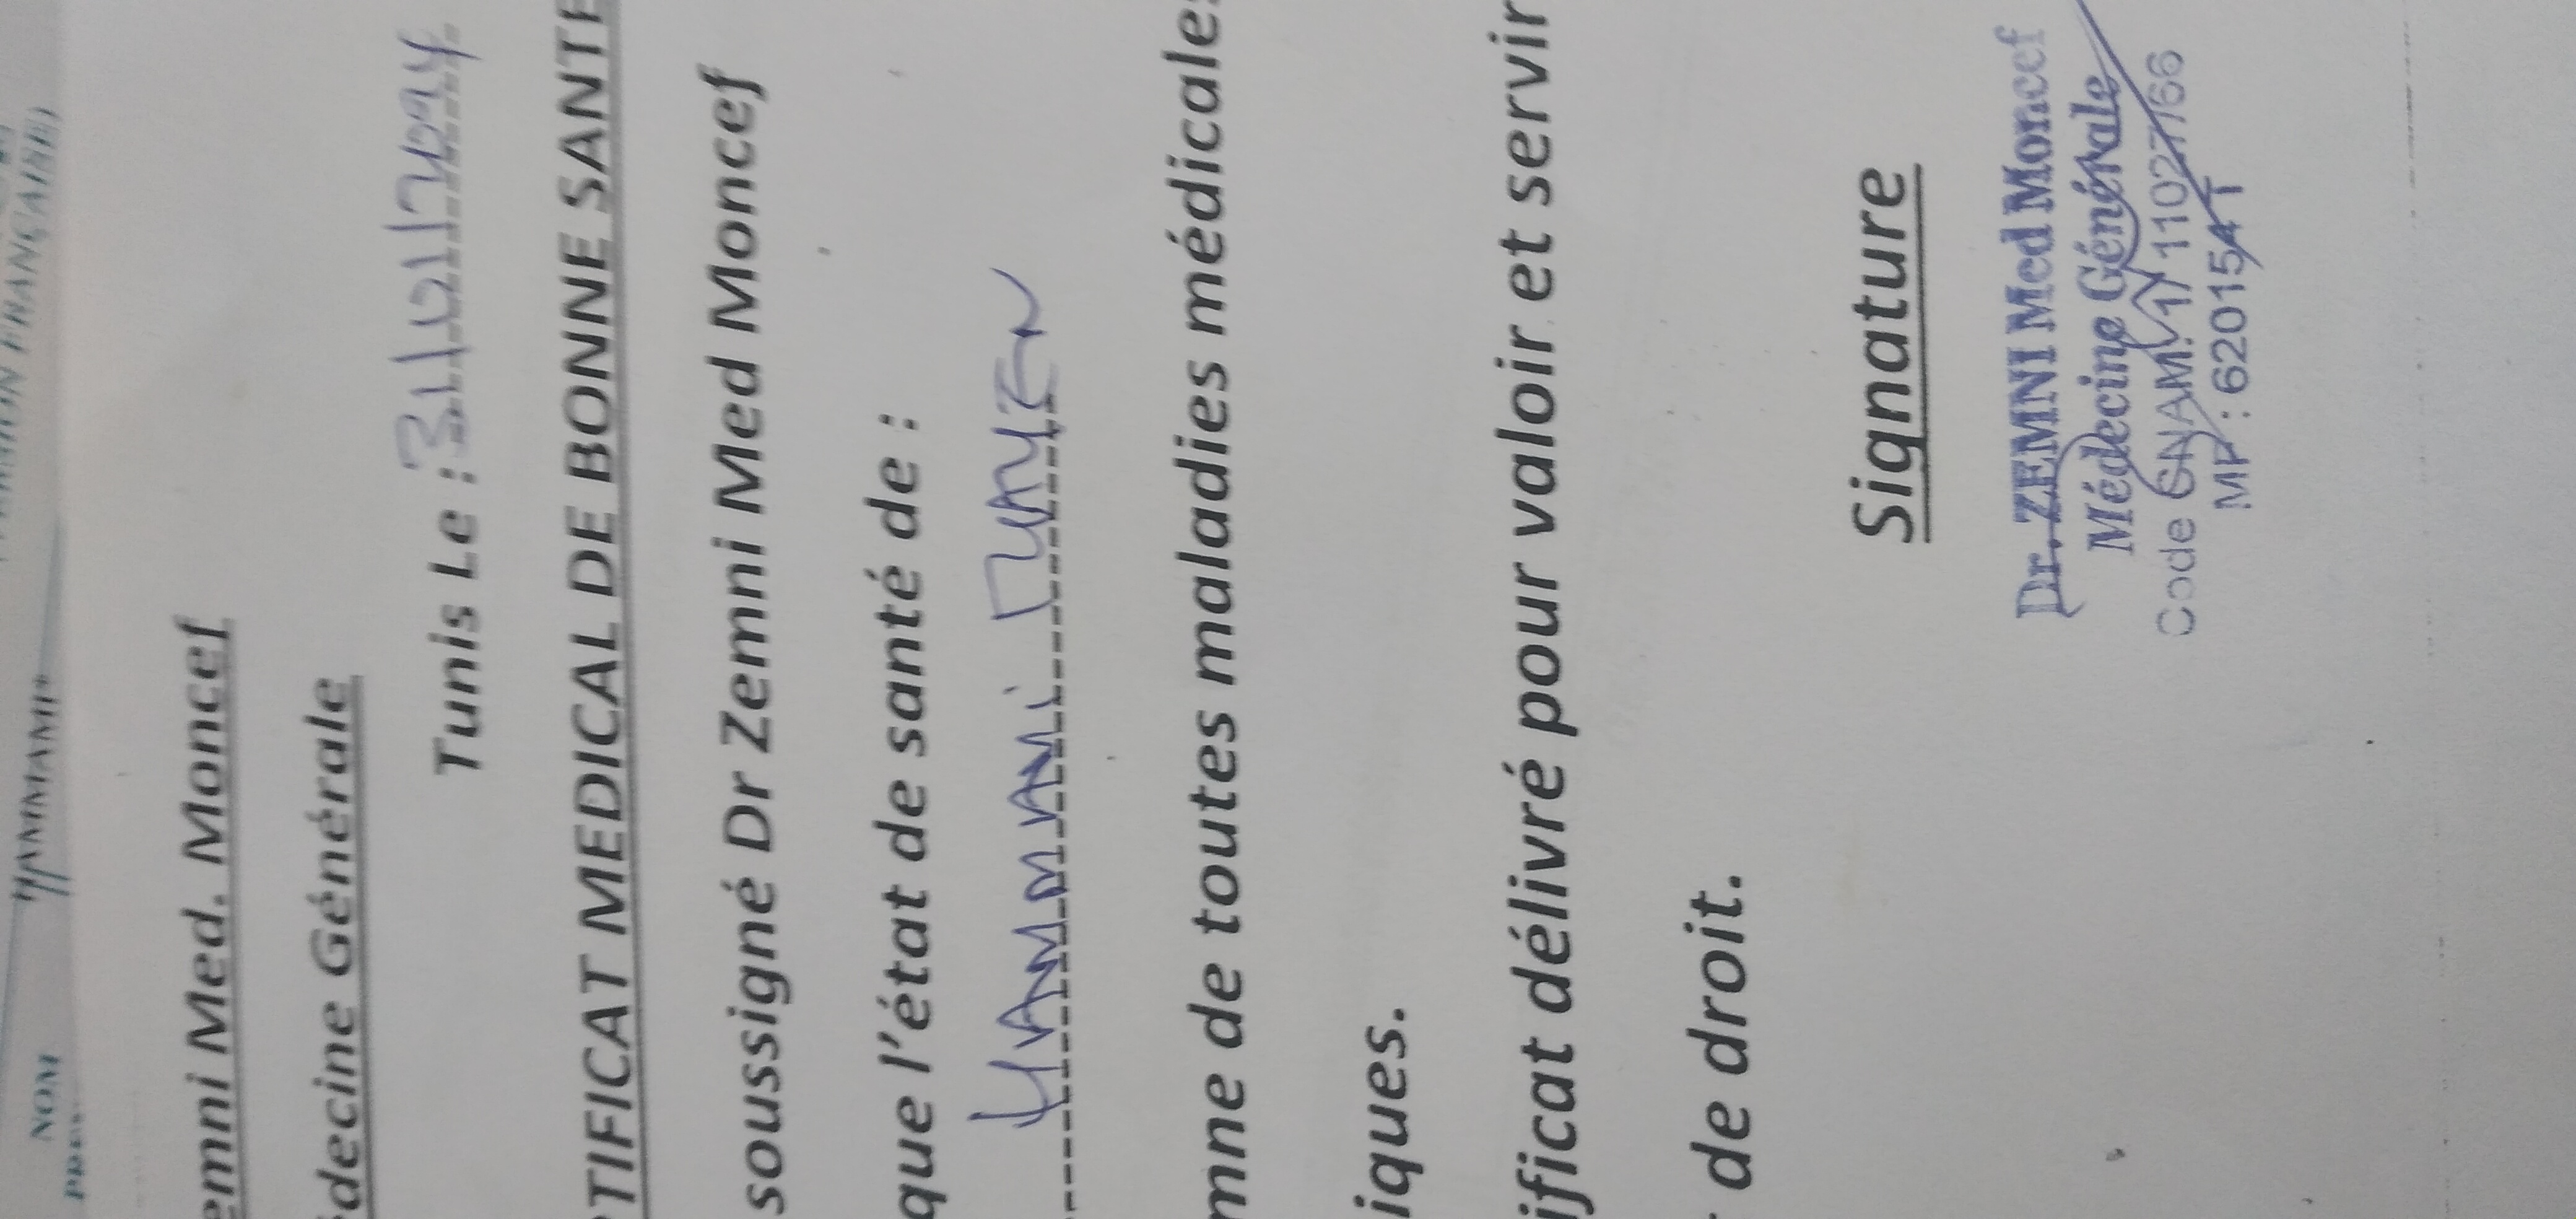 NOM
HAMMAMI
emni Med. Moncef
decine Générale
Tunis Le : 31/01/2024
TIFICAT MEDICAL DE BONNE SANTE
soussigné Dr Zemni Med Moncef
que l'état de santé de :
HAMMAMI
mne de toutes maladies médicales
iques.
ificat délivré pour valoir et servir
de droit.
Signature
Dr. ZEMNI Med Moncef
Médecine Générale
Code CNAM: 1/11027/66
MF : 620154/T